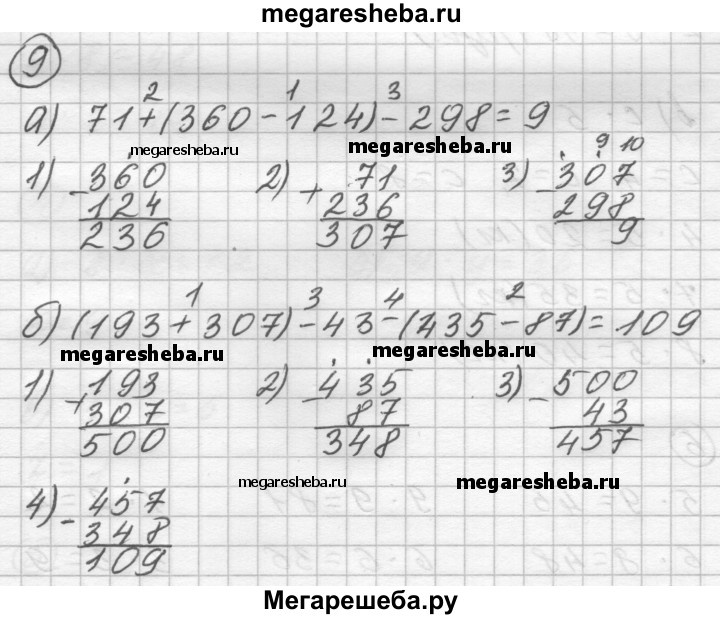 megaresheba.ru
9
2 1 3
а) 71+(360-124)-298=9
megaresheba.ru megaresheba.ru
9 10
1) -360 2) +71 3) -307
124 236 298
236 307 9
1 3 4 2
б) (193+307)-43-(435-87)=109
megaresheba.ru megaresheba.ru
1) +193 2) -435 3) -500
307 87 43
500 348 457
megaresheba.ru megaresheba.ru
4) -457
348
109
Мегарешеба.ру